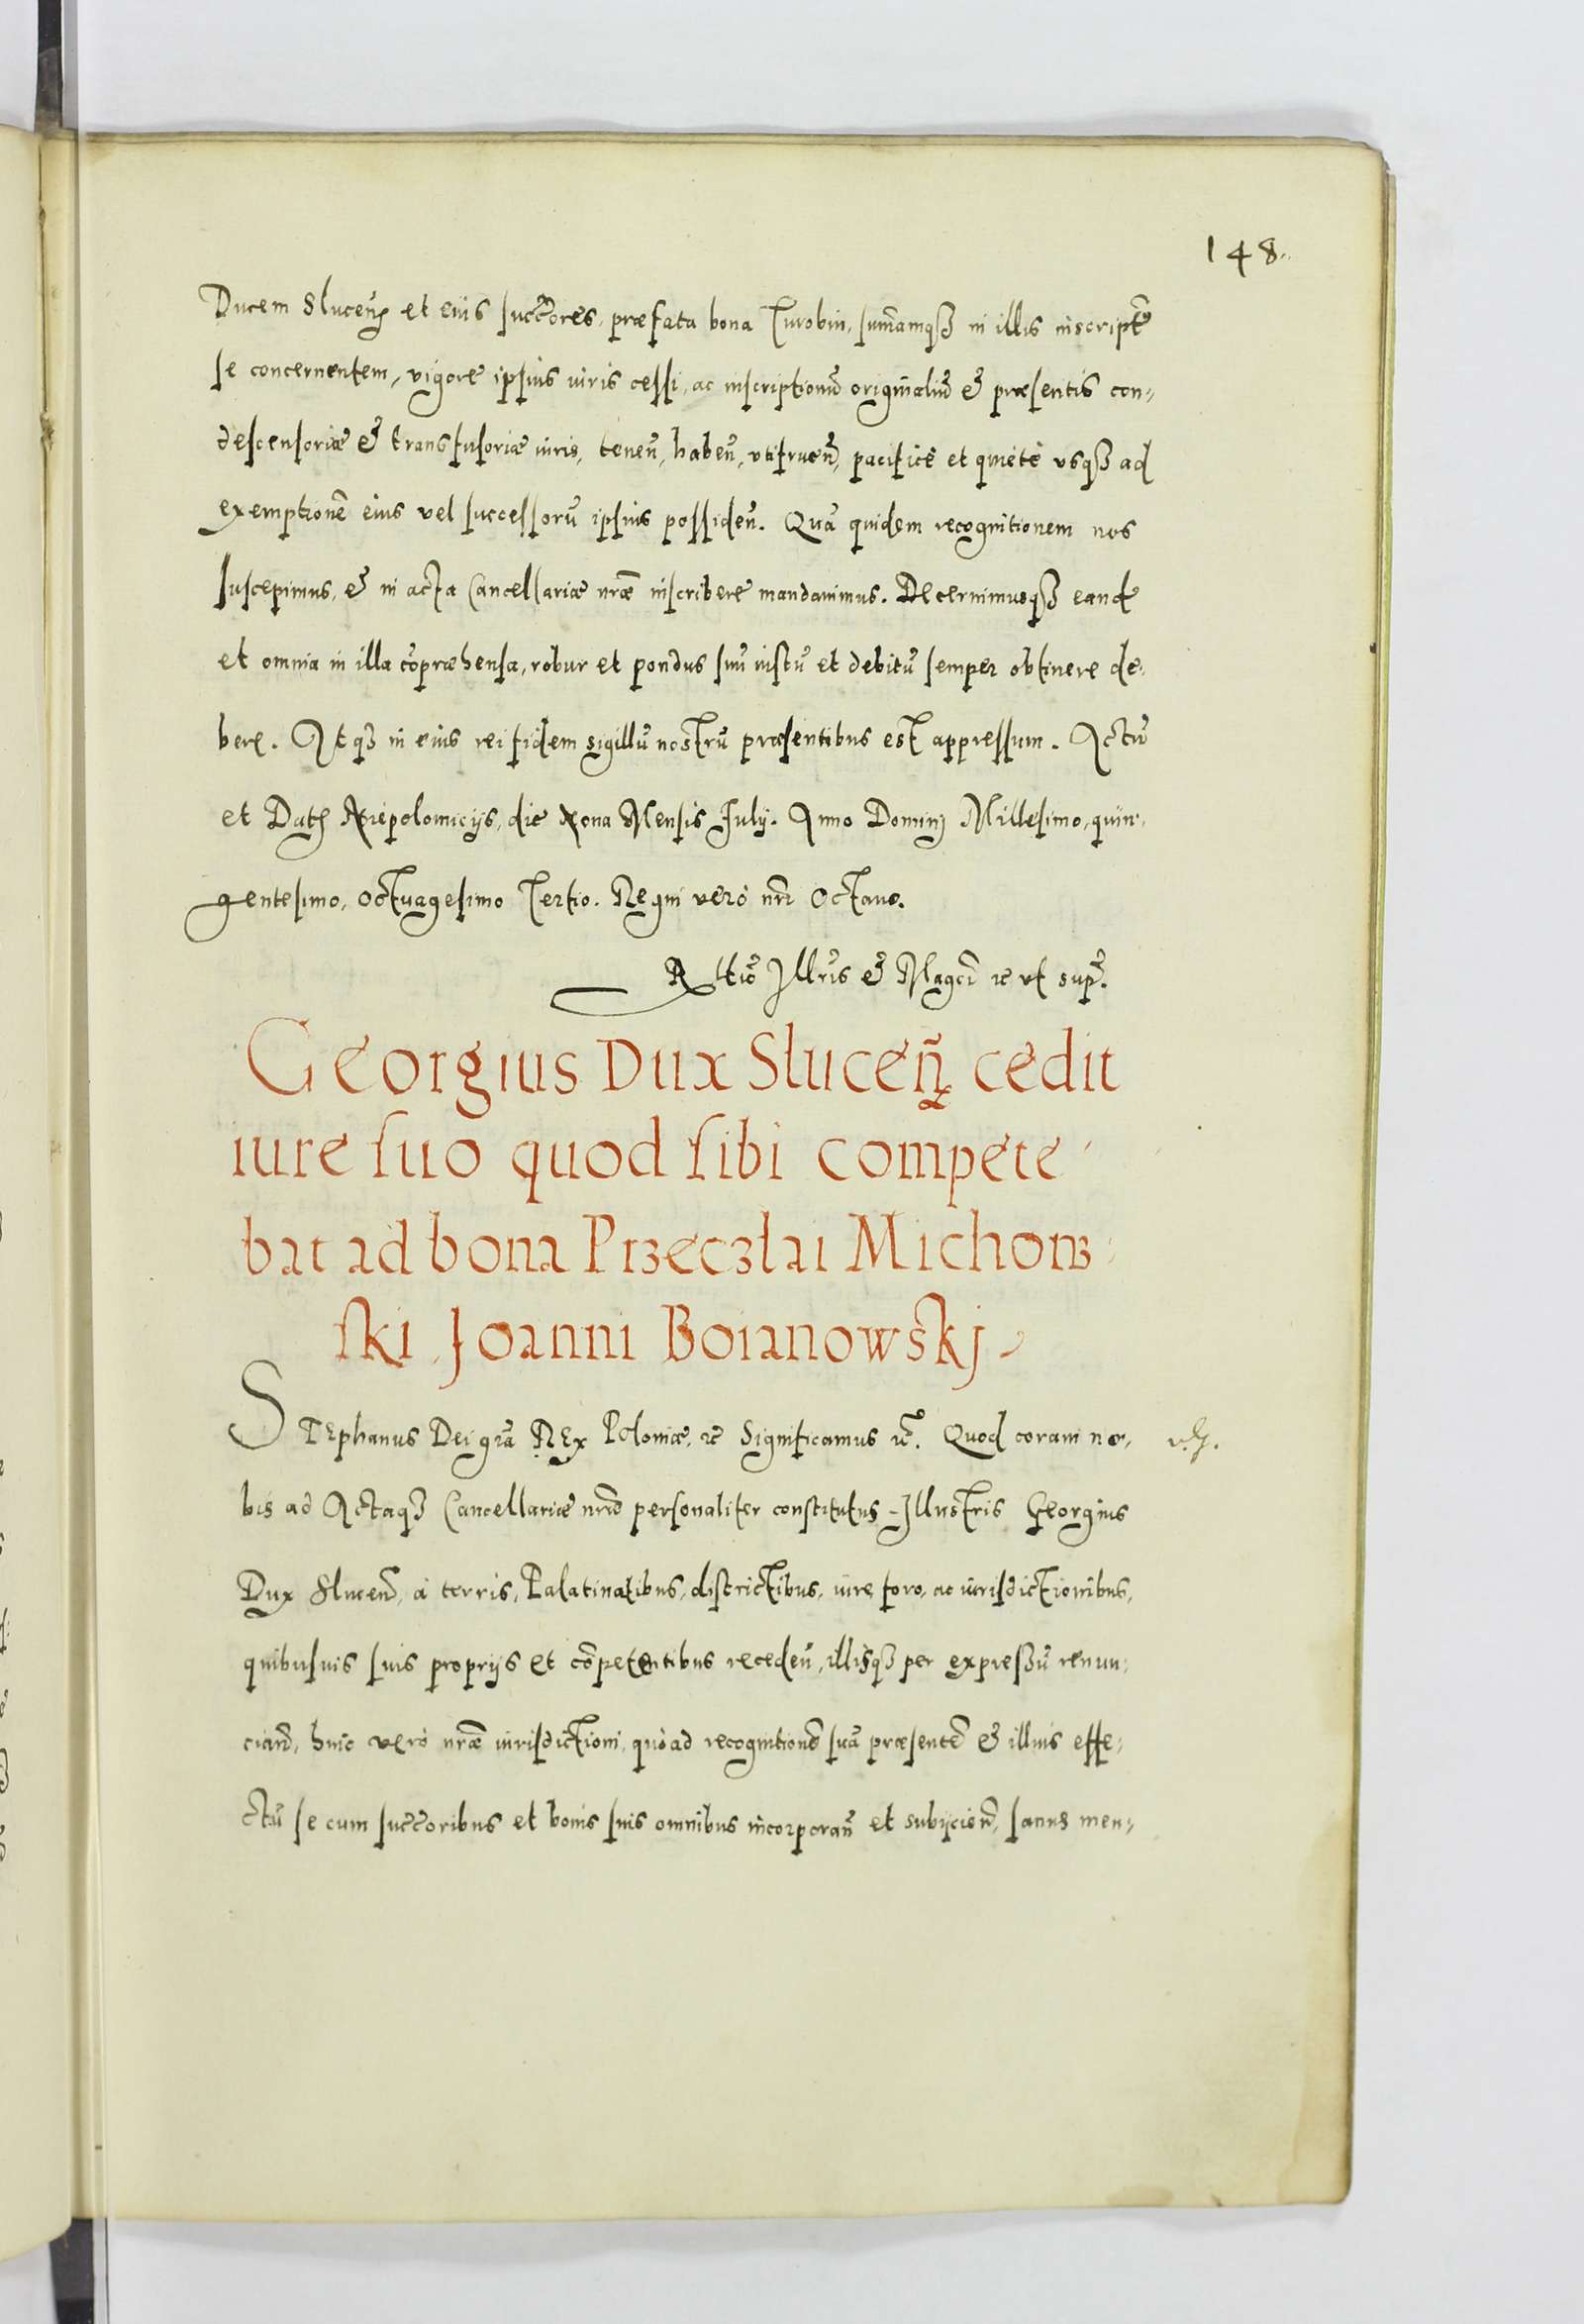 148.
Ducem Slucen̄ et eius succ̄ores, præfata bona Turobin, sum̄amqȝ in illis inscript̄
se concernentem, vigore ipsius iuris cessi, ac inscriptionū originaliū et præsentis con-
descensoriæ et transfusoriæ iuris, tenen̄, haben̄, utifruen̄, pacificè et quietè vsqȝ ad
exemptionē eius vel successorū ipsius possiden̄. Quā quidem recognitionem nos
suscepimus, et in acta Cancellariæ nr̄æ inscribere mandauimus. Decernimusqȝ eand̄
et omnia in illa cōpræhensa, robur et pondus suū iustū et debitū semper obtinere de-
bere. Atqȝ in eius rei fidem sigillū nostrū præsentibus est appressum. Actū
et Dat̄ Niepolomicijs, die Nona Mensis Julij. Anno Domini Millesimo, quin-
gentesimo, octuagesimo Tertio. Regni verò nr̄i Octauo.
R̄ltio Illr̄is et Magcī ꝛc vt sup̄.
Georgius Dux Slucen̄ cedit
iure suo quod sibi compete-
bat ad bona Przeczlai Michorz-
ski Joanni Boianowskj
Stephanus Dei gr̄a Rex Poloniæ, ꝛc Significamus ꝛc̄. Quod coram no-
bis ad Actaqȝ Cancellariæ nr̄æ personaliter constitutus Illustris Georgius
Dux Slucen̄, à terris, Palatinatibus, districtibus, iure foro, ac iurisdictionibus,
quibusuis suis proprijs et cōpetentibus receden̄, illisqȝ per expressū renun-
cian̄, huic verò nr̄æ iurisdictioni, quò ad recognitionē suā præsentē et illius effe-
ctū se cum succ̄oribus et bonis suis omnibus incorporan̄ et subijcien̄, sanus men-